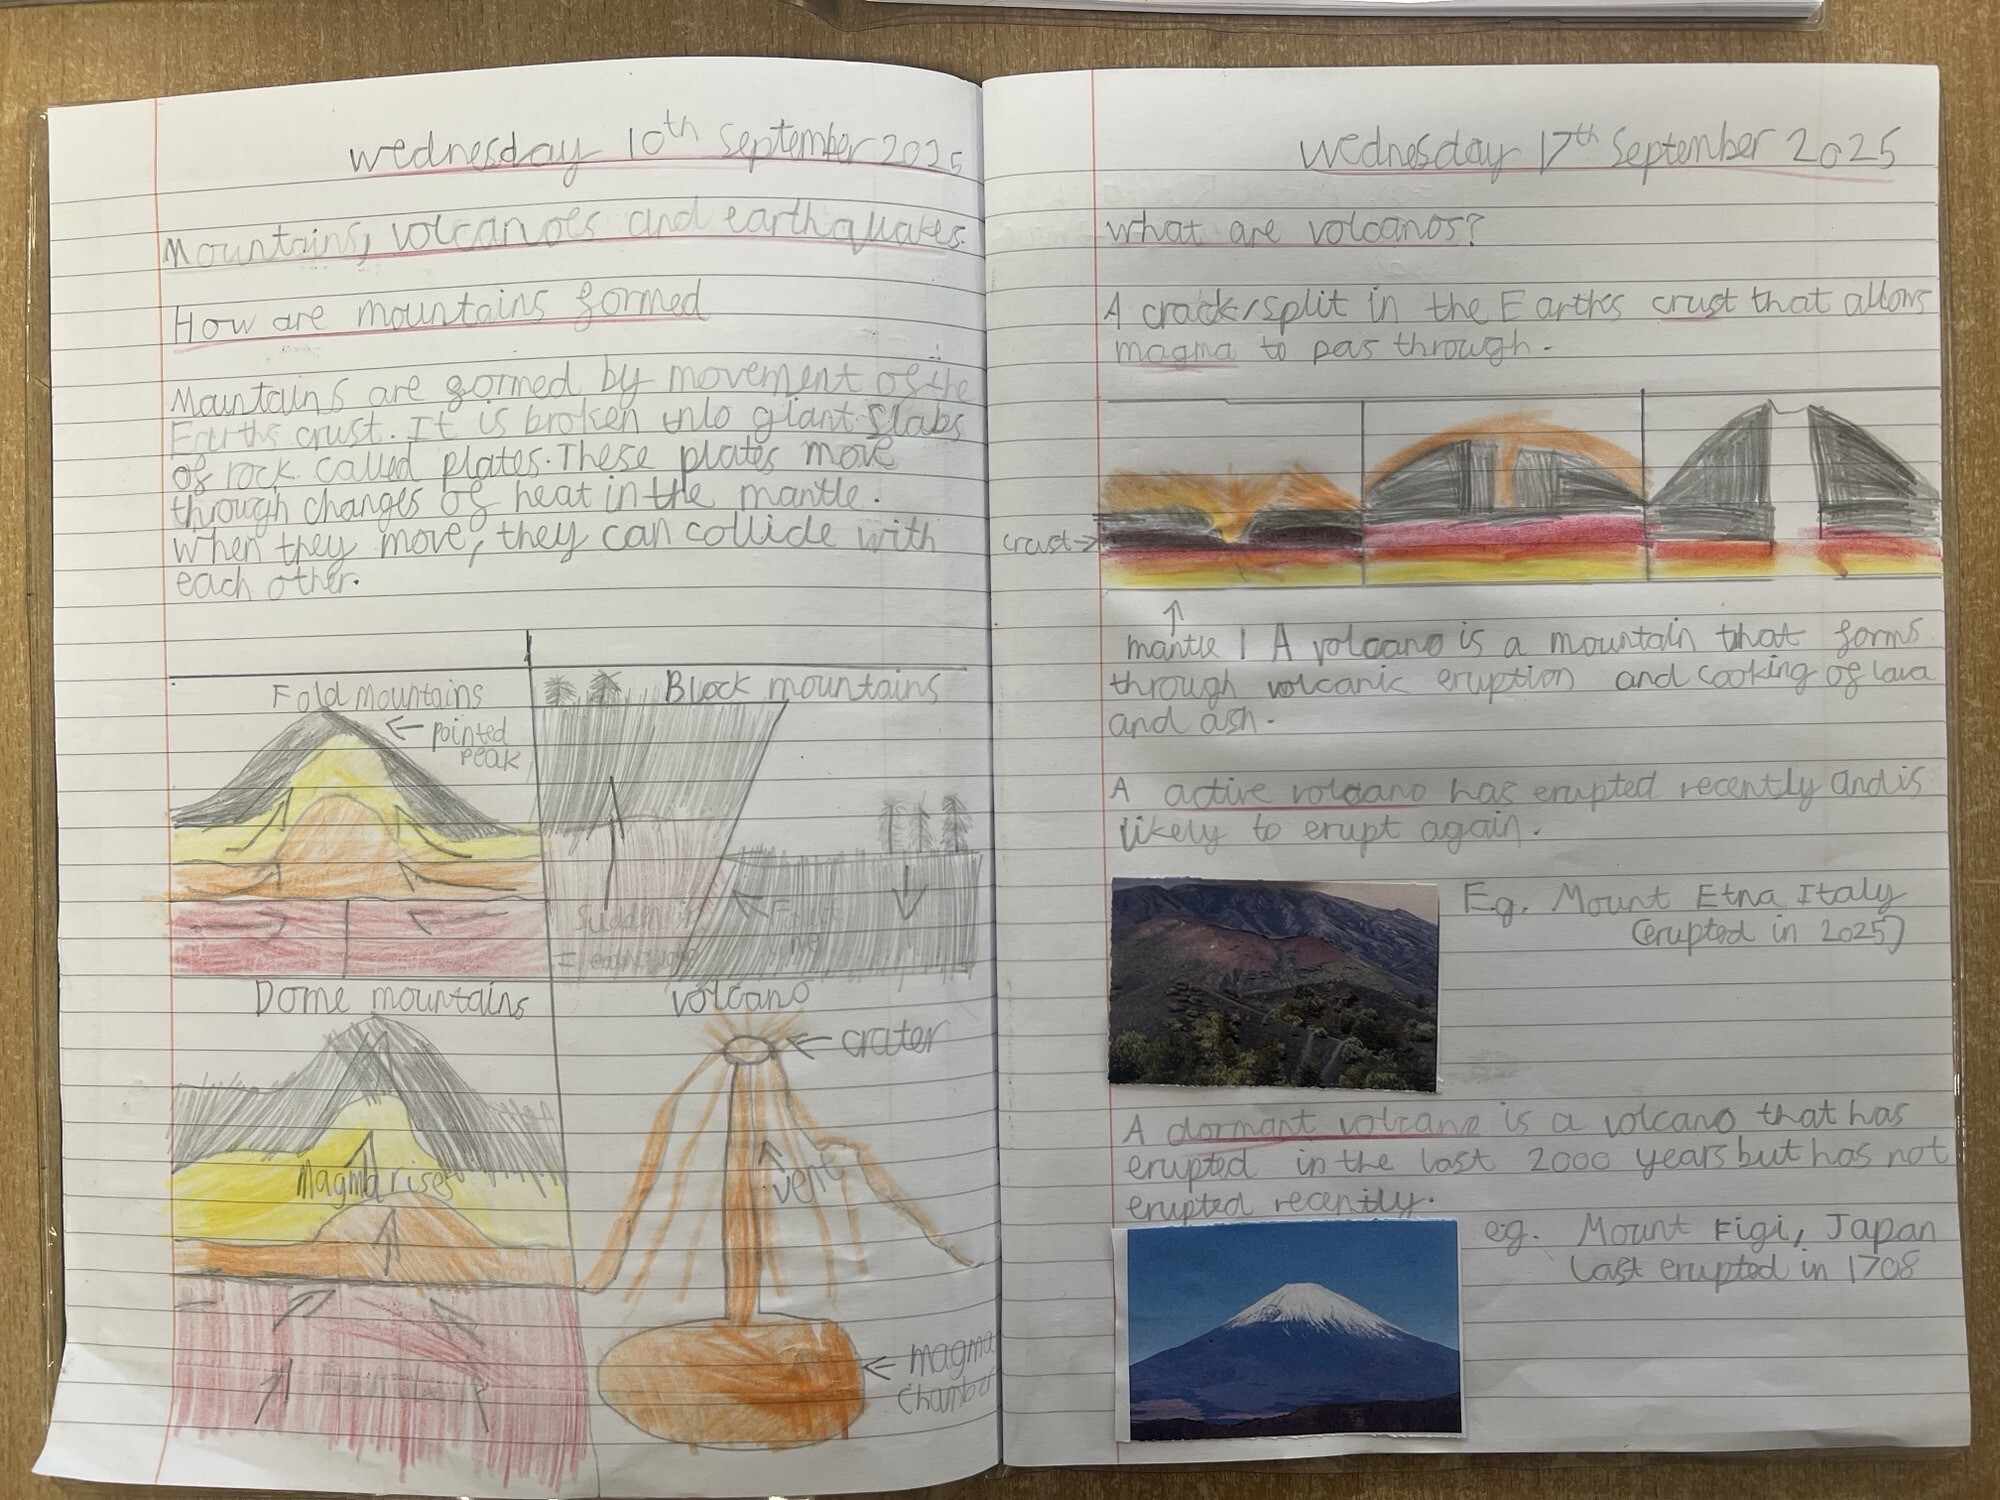 Wednesday 10th September 2025
Mountains, volcanoes and earthquakes.
How are mountains formed
Mountains are formed by movement of the
Earths crust. It is broken into giant slabs
of rock called plates. These plates move
through changes of heat in the mantle.
When they move, they can collide with
each other.
Fold mountains
← pointed
peak
Block mountains
Fault
line
Dome mountains
Magma rises
volcano
← crater
vent
← magma
chamber
Wednesday 17th September 2025
What are volcanos?
A crack/split in the Earths crust that allows
magma to pas through.
crust→
mantle | A volcano is a mountain that forms
through volcanic eruption and cooking of lava
and ash.
A active volcano has erupted recently and is
likely to erupt again.
E.g. Mount Etna Italy
(erupted in 2025)
A dormant volcano is a volcano that has
erupted in the last 2000 years but has not
erupted recently.
eg. Mount Figi, Japan
last erupted in 1708